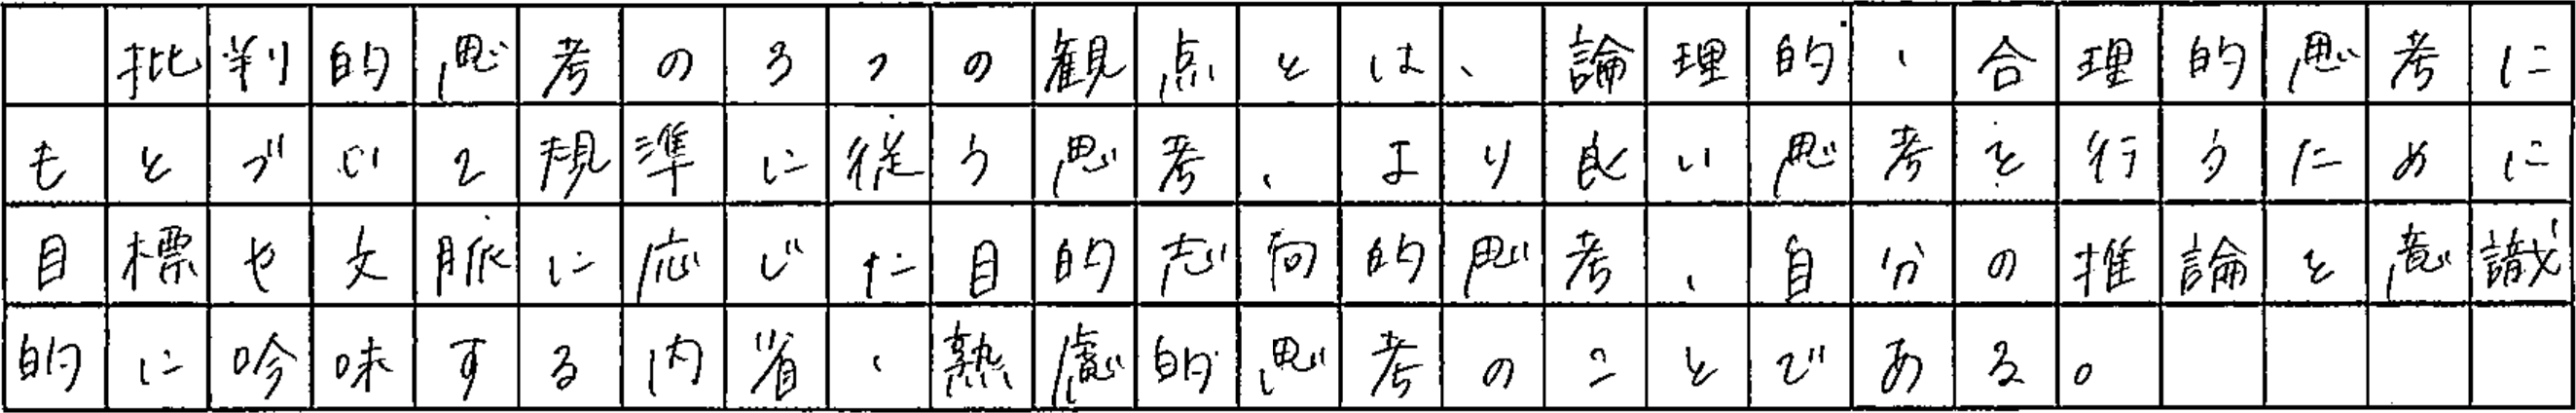 批判的思考の3つの観点とは、論理的、合理的思考に
もとづいて規準に従う思考、より良い思考を行うために
目標や文脈に応じた目的志向的思考、自分の推論を意識
的に吟味する内省、熟慮的思考のことである。